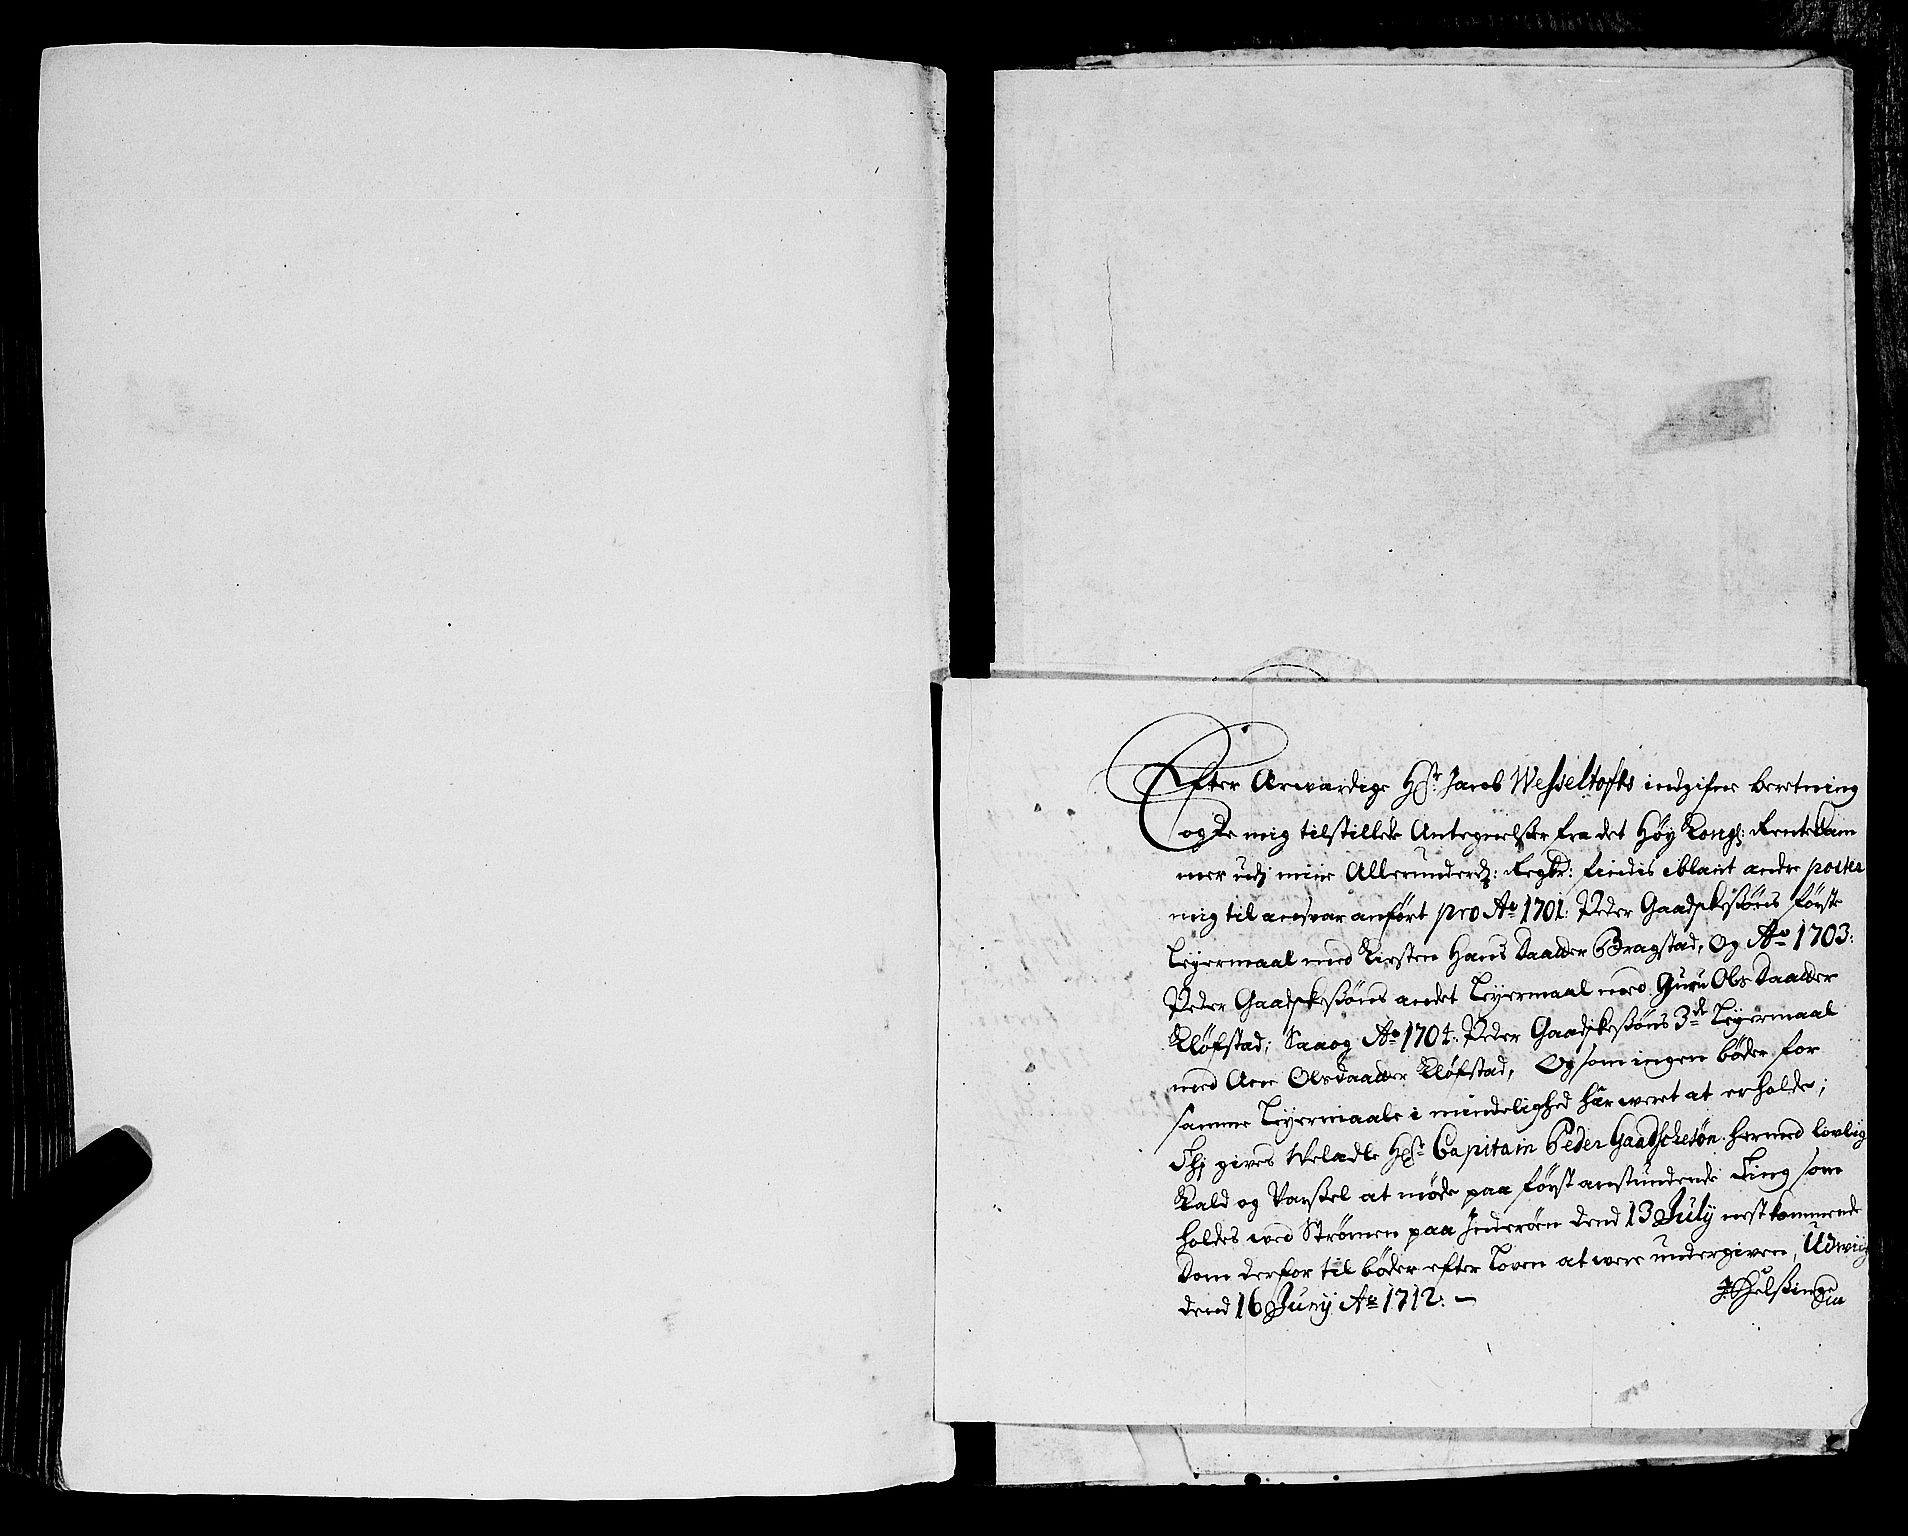 Efter Ærwærdige Hr: Jacob Wesseltofts indgifne beretning
og De mig tilstillede Antegnelser fra det Høy Kongl: RenteKam
mer udj mine Allerunderd: Regbr: findis iblant andre poster
mig til ansvar anført pro Ao 1701: Peder Gaadskesøns første
Leyermaal med Kirsten Hans Daatter Bragstad, Og Ao 1703:
Peder Gaadskesøns andet Leyermaal med Guru Ols Daatter
Kløfstad; Saaog Ao 1704: Peder Gaadskesøns 3de Leyermaal
med Ane Olsdaatter Kløfstad, Og som ingen bøder for
samme Leyermaale i mindelighed har weret at erholde;
Thj gives Welædle Hr: Capitain Peder Gaadschesøn hermed lovlig
Kald og Varssel at møde paa først anstundende Ting som
holdes wed Strømen paa Inderøen dend 13 July nest kommende
Dom derfor til bøder efter Loven at were undergiven, Udwiig
dend 16 Juny Ao 1712: —